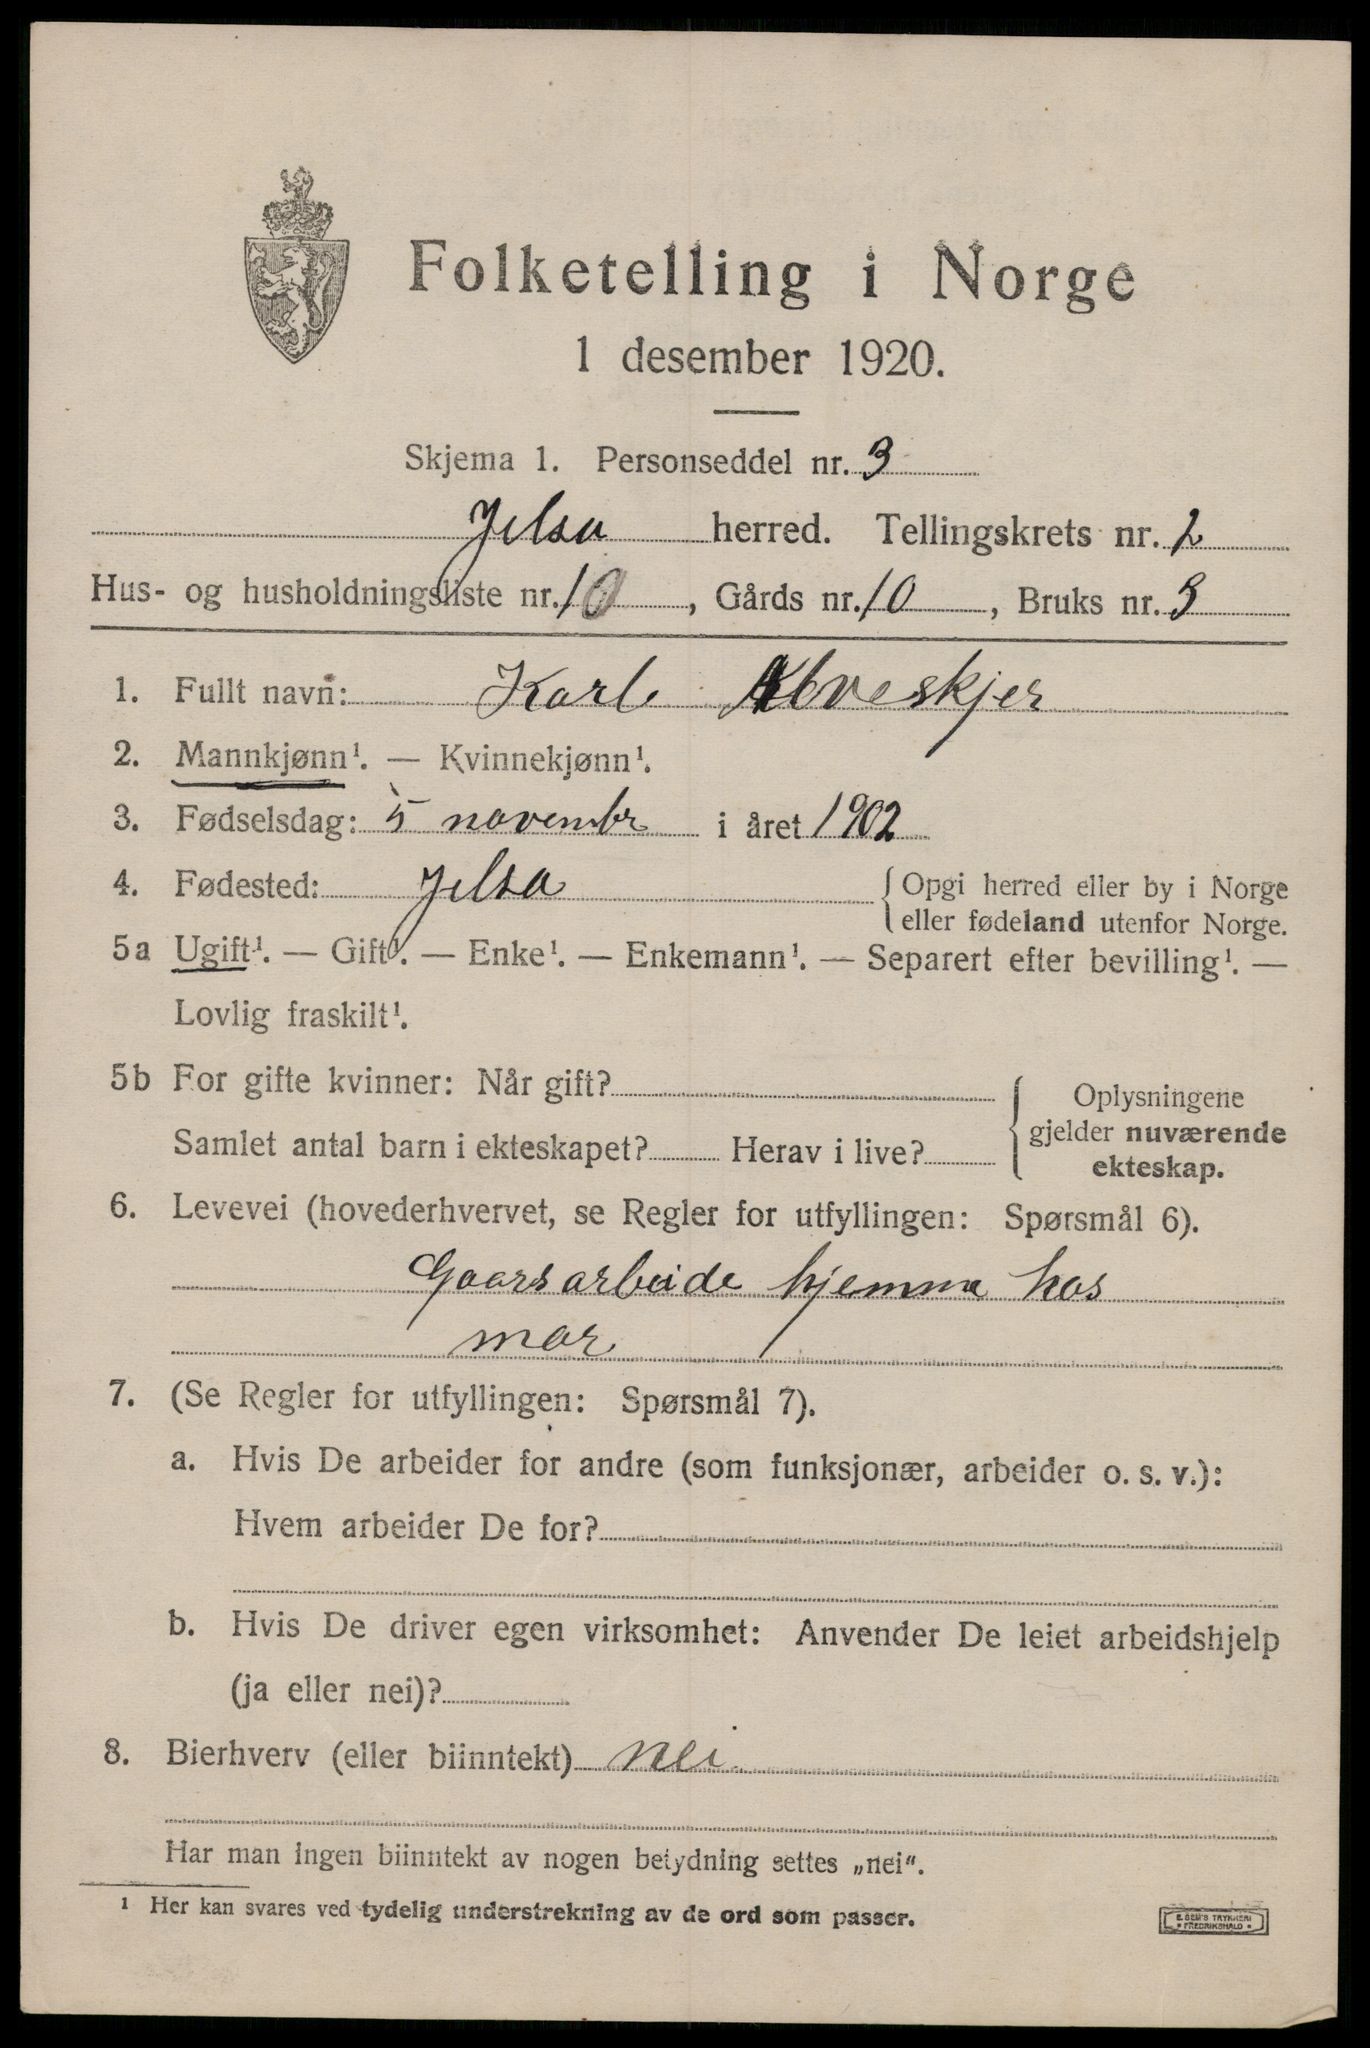 Folketelling i Norge
1 desember 1920.
Skjema 1. Personseddel nr. 3
Jelsa herred. Tellingskrets nr. 2
Hus- og husholdningsliste nr. 10, Gårds nr. 10, Bruks nr. 3
1. Fullt navn: Karl
2. Mannkjønn¹. — Kvinnekjønn¹.
3. Fødselsdag: 5 novembr i året 1902
4. Fødested: Jelsa { Opgi herred eller by i Norge
eller fødeland utenfor Norge.
5a Ugift¹. — Gift¹. — Enke¹. — Enkemann¹. — Separert efter bevilling¹. —
Lovlig fraskilt¹.
5b For gifte kvinner: Når gift? { Oplysningene
gjelder nuværende
ekteskap.
Samlet antal barn i ekteskapet? Herav i live?
6. Levevei (hovederhvervet, se Regler for utfyllingen: Spørsmål 6).
Gaarsarbeide hjemme hos
mor
7. (Se Regler for utfyllingen: Spørsmål 7).
a. Hvis De arbeider for andre (som funksjonær, arbeider o. s. v.):
Hvem arbeider De for?
b. Hvis De driver egen virksomhet: Anvender De leiet arbeidshjelp
(ja eller nei)?
8. Bierhverv (eller biinntekt) nei
Har man ingen biinntekt av nogen betydning settes „nei“.
¹ Her kan svares ved tydelig understrekning av de ord som passer.
E. SEM'S TRYKKERI
* FREDRIKSHALD *